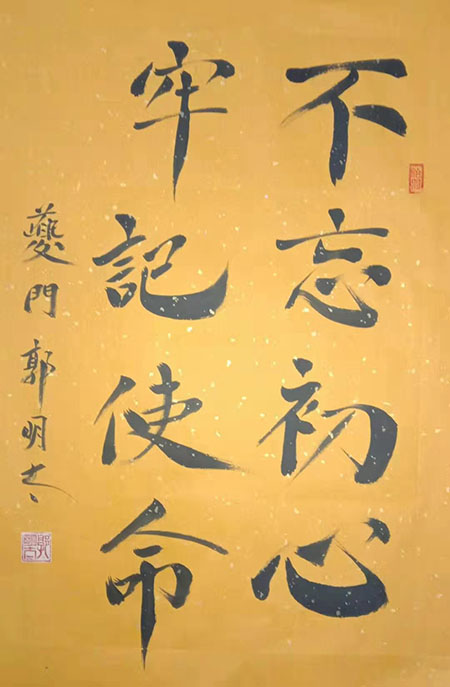 不忘初心
牢記使命
夔門 郭明